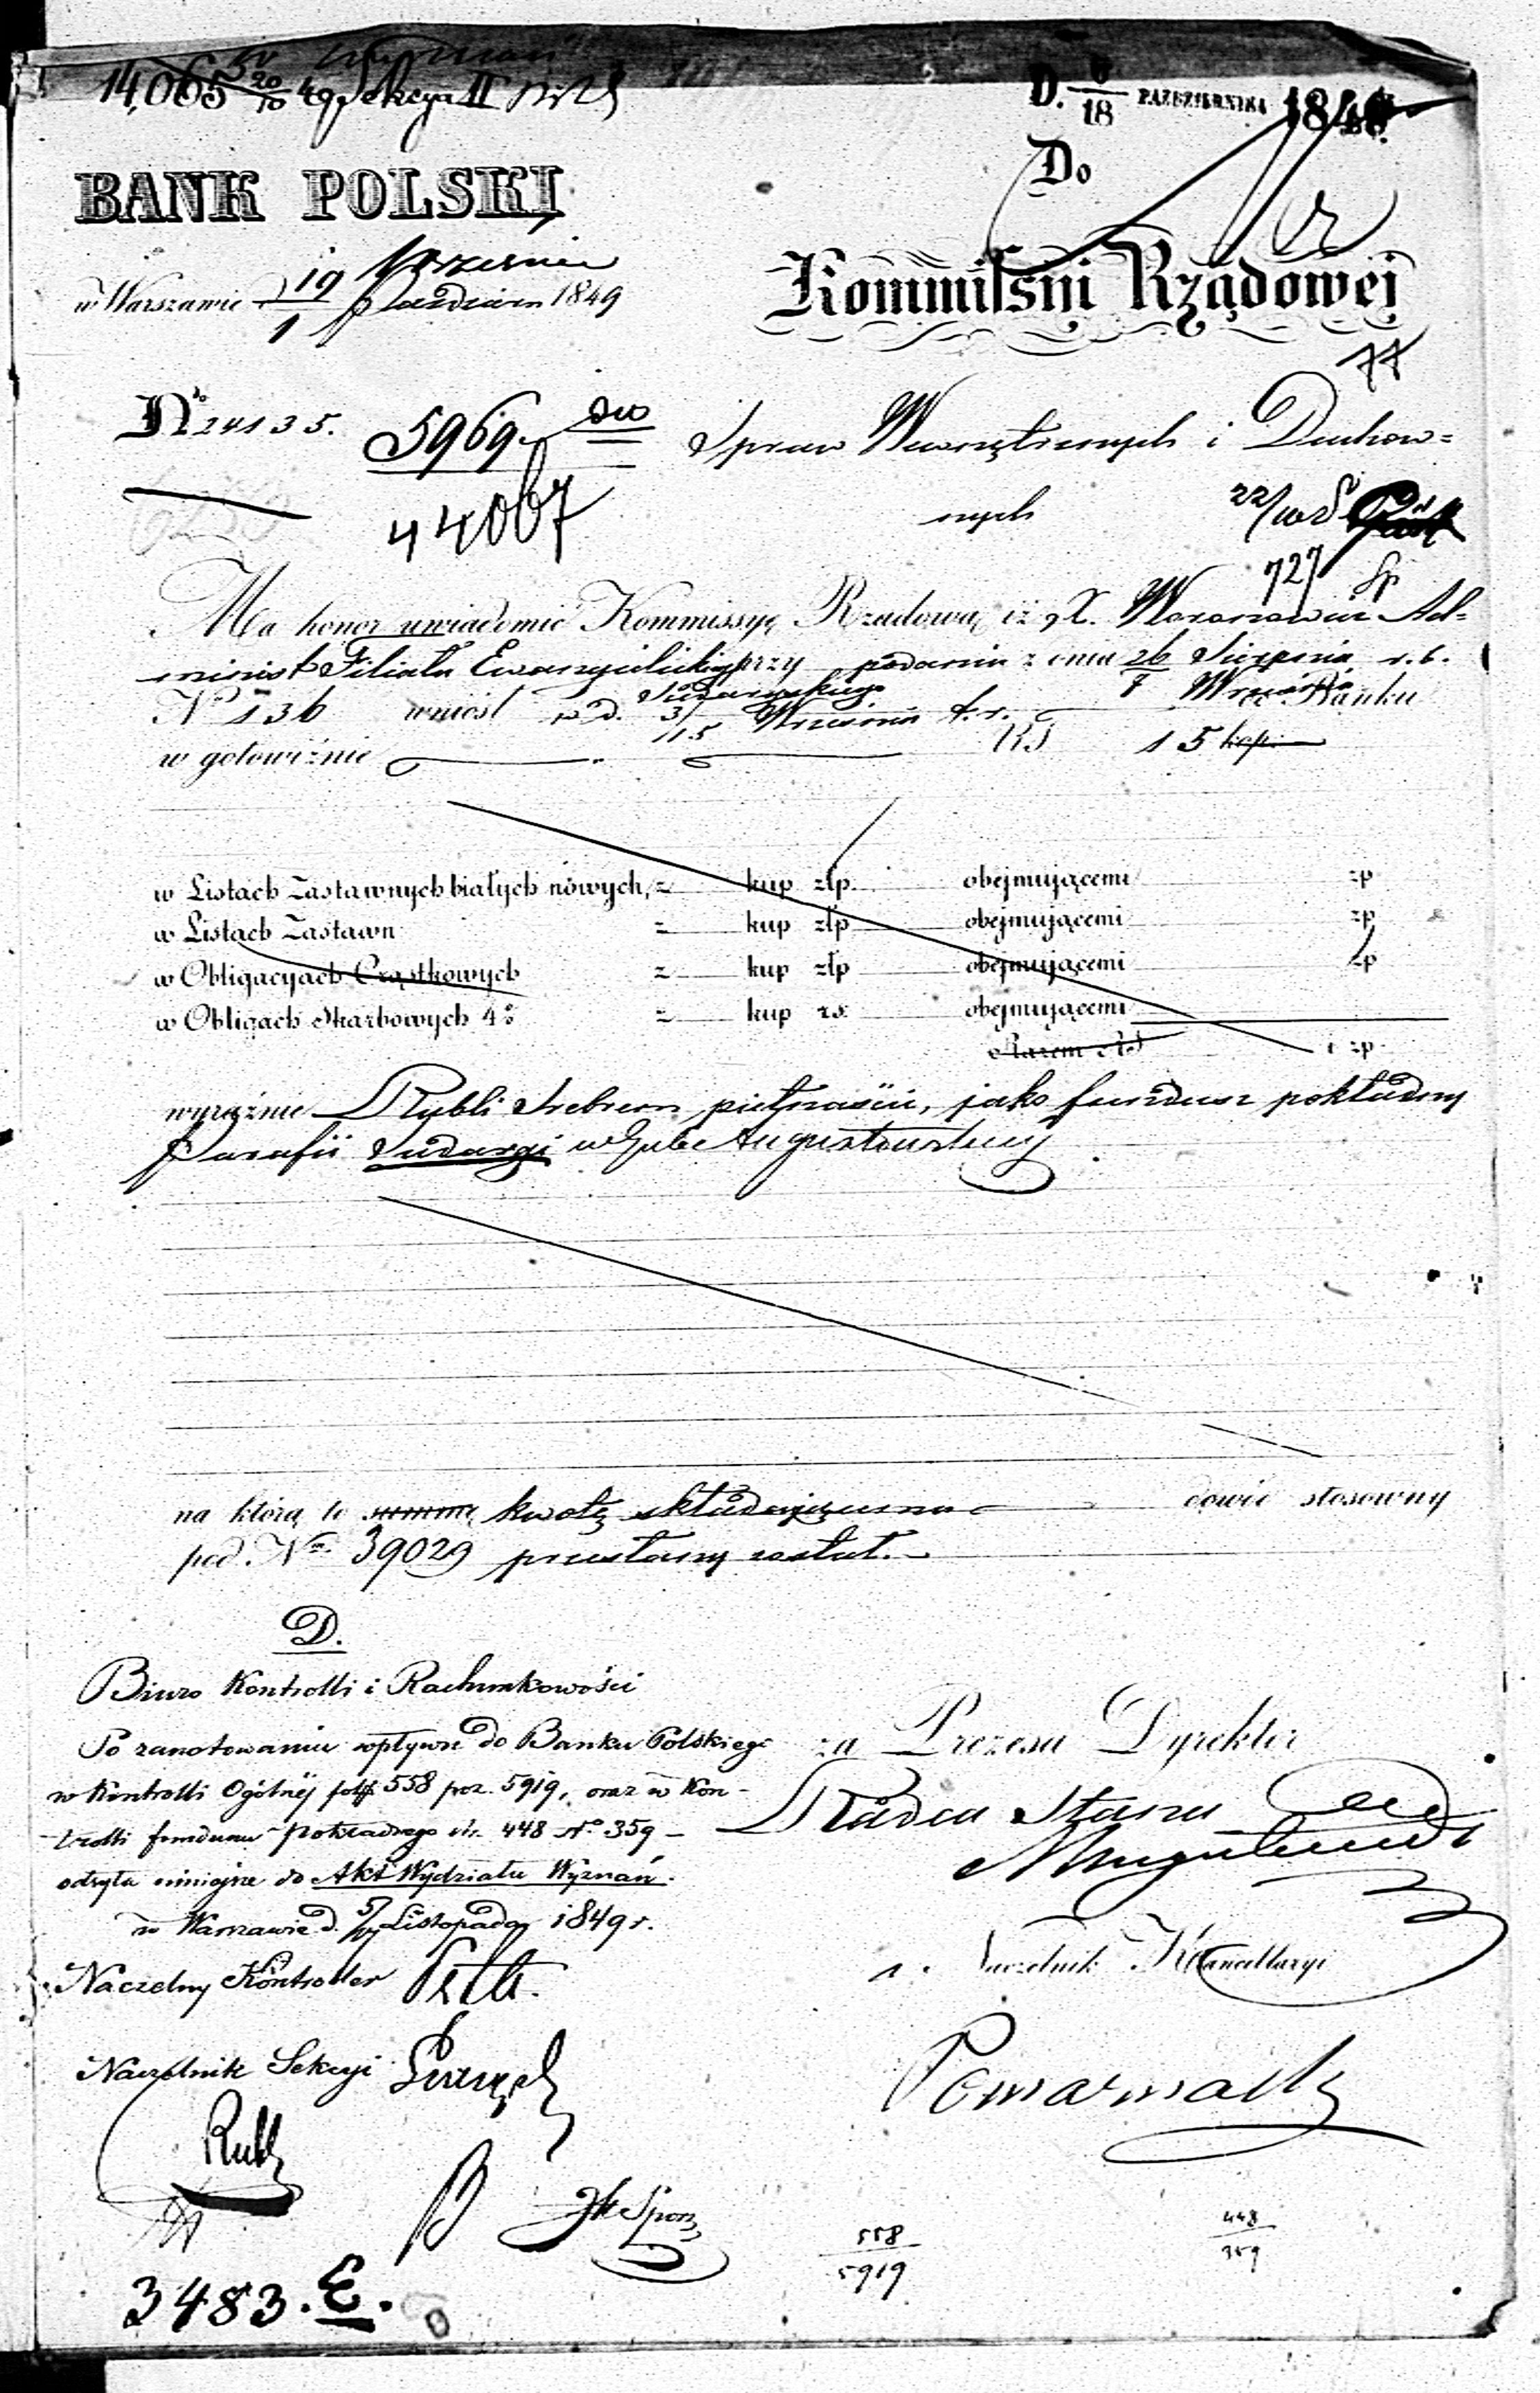 14,065 20/10 49 Sekcya II
D. 6/18 PAZDZIERNIKA 1849.
BANK POLSKI
Do
w Warszawie d 19 Września
1 Październ 1849
Kommissyi Rządowej
77
No 24135. 5969
Spraw Wewnętrznych i Duchow=
nych
44067
22/10
727
Ma honor uwiadomić Kommissyę Rządową, iż X. Woronowicz Ad=
minist. Filiału Ewangelickiego przy podaniu z dnia 26 Sierpnia r. b.
Sudargskiego 7 Września
No 136 wniósł w d. 3/15 Września t. r. Banku
w gotowiźnie RS 15 kop.
w Listach Zastawnych białych nowych, z kup złp. obejmującemi zp
w Listach Zastawn z kup złp obejmującemi zp
w Obligacyjach Cząstkowych z kup złp obejmującemi zp
w Obligach Skarbowych 4% z kup rs. obejmującemi
Razem RS i zp
wyraźnie Rubli srebrem piętnaście, jako fundusz pokładny
Parafii Sudargi w Gube Augustowskiej
na którą to summę kwotę składającemu dowód stosowny
pod. No 39029 przesłany został.
D.
Biuro Kontrolli i Rachunkowości
Po zanotowaniu wpływu do Banku Polskiego
w Kontrolli Ogólnéj fol 558 poz. 5919, oraz w Kon-
trolli funduszu pokładnego str. 448 No 359
odsyła niniejsze do Akt Wydziału Wyznań.
w Warszawie d. 5/17 Listopada 1849 r.
za Prezesa Dyrektor
Radca Stanu
Naczelny Kontroller
Naczelnik Kancellaryi
Naczelnik Sekcyi
558
5919
448
359
3483. E.